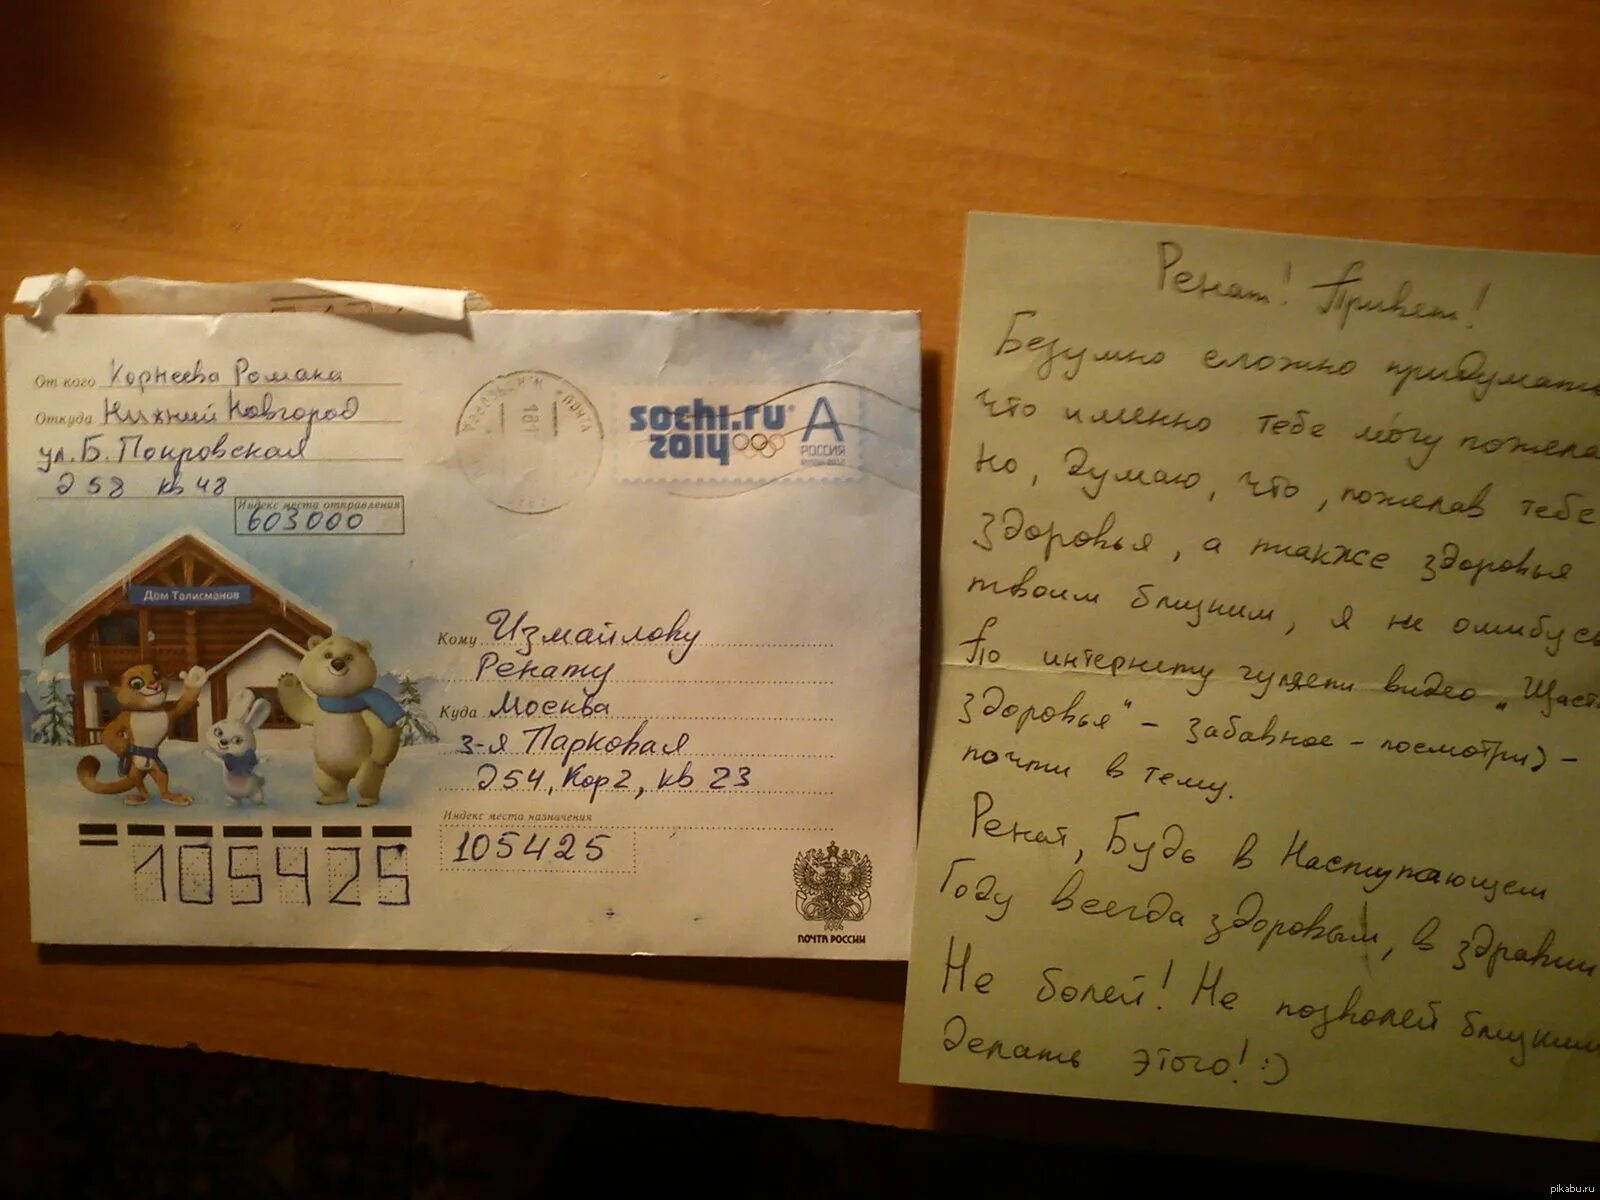 От кого Корнеева Романа
Откуда Нижний Новгород
ул. Б. Покровская
д 58 кв 48
Индекс места отправления
603000
Дом Талисманов
sochi.ru
2014
А
РОССИЯ
Кому Измайлову
Ренату
Куда Москва
3-я Парковая
д54, кор 2, кв 23
Индекс места назначения
105425
105425
ПОЧТА РОССИИ
Ренат! Привет!
Безумно сложно придумать
что именно тебе могу пожела
Но, думаю, что, пожелав тебе
здоровья, а также здоровья
твоим близким, я не ошибусь
По интернету гуляет видео „Щаст
здоровья" - забавное - посмотри) -
почти в тему.
Ренат, Будь в Наступающем
Году всегда здоровым, в здравии
Не болей! Не позволяй близким
делать этого! :)
pikabu.ru